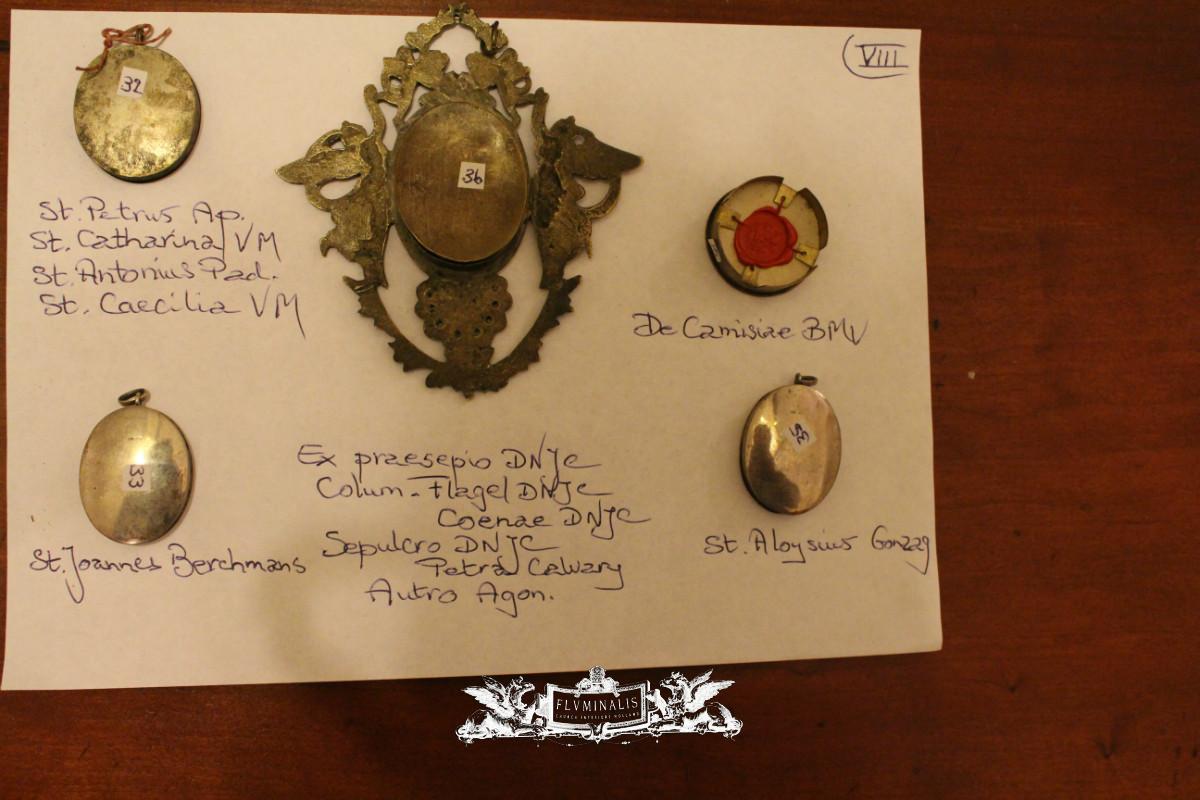 VIII
32
36
St. Petrus Ap.
St. Catharina VM
St. Antonius Pad.
St. Caecilia VM
De Camisiae BMV
33
53
St. Joannes Berchmans
Ex praesepio DNJC
Colum. Flagel DNJC
Coenae DNJC
Sepulcro DNJC
Petra Calvary
Autro Agon.
St. Aloysius Gonzag
FLVMINALIS
CHURCH INTERIORS HOLLAND